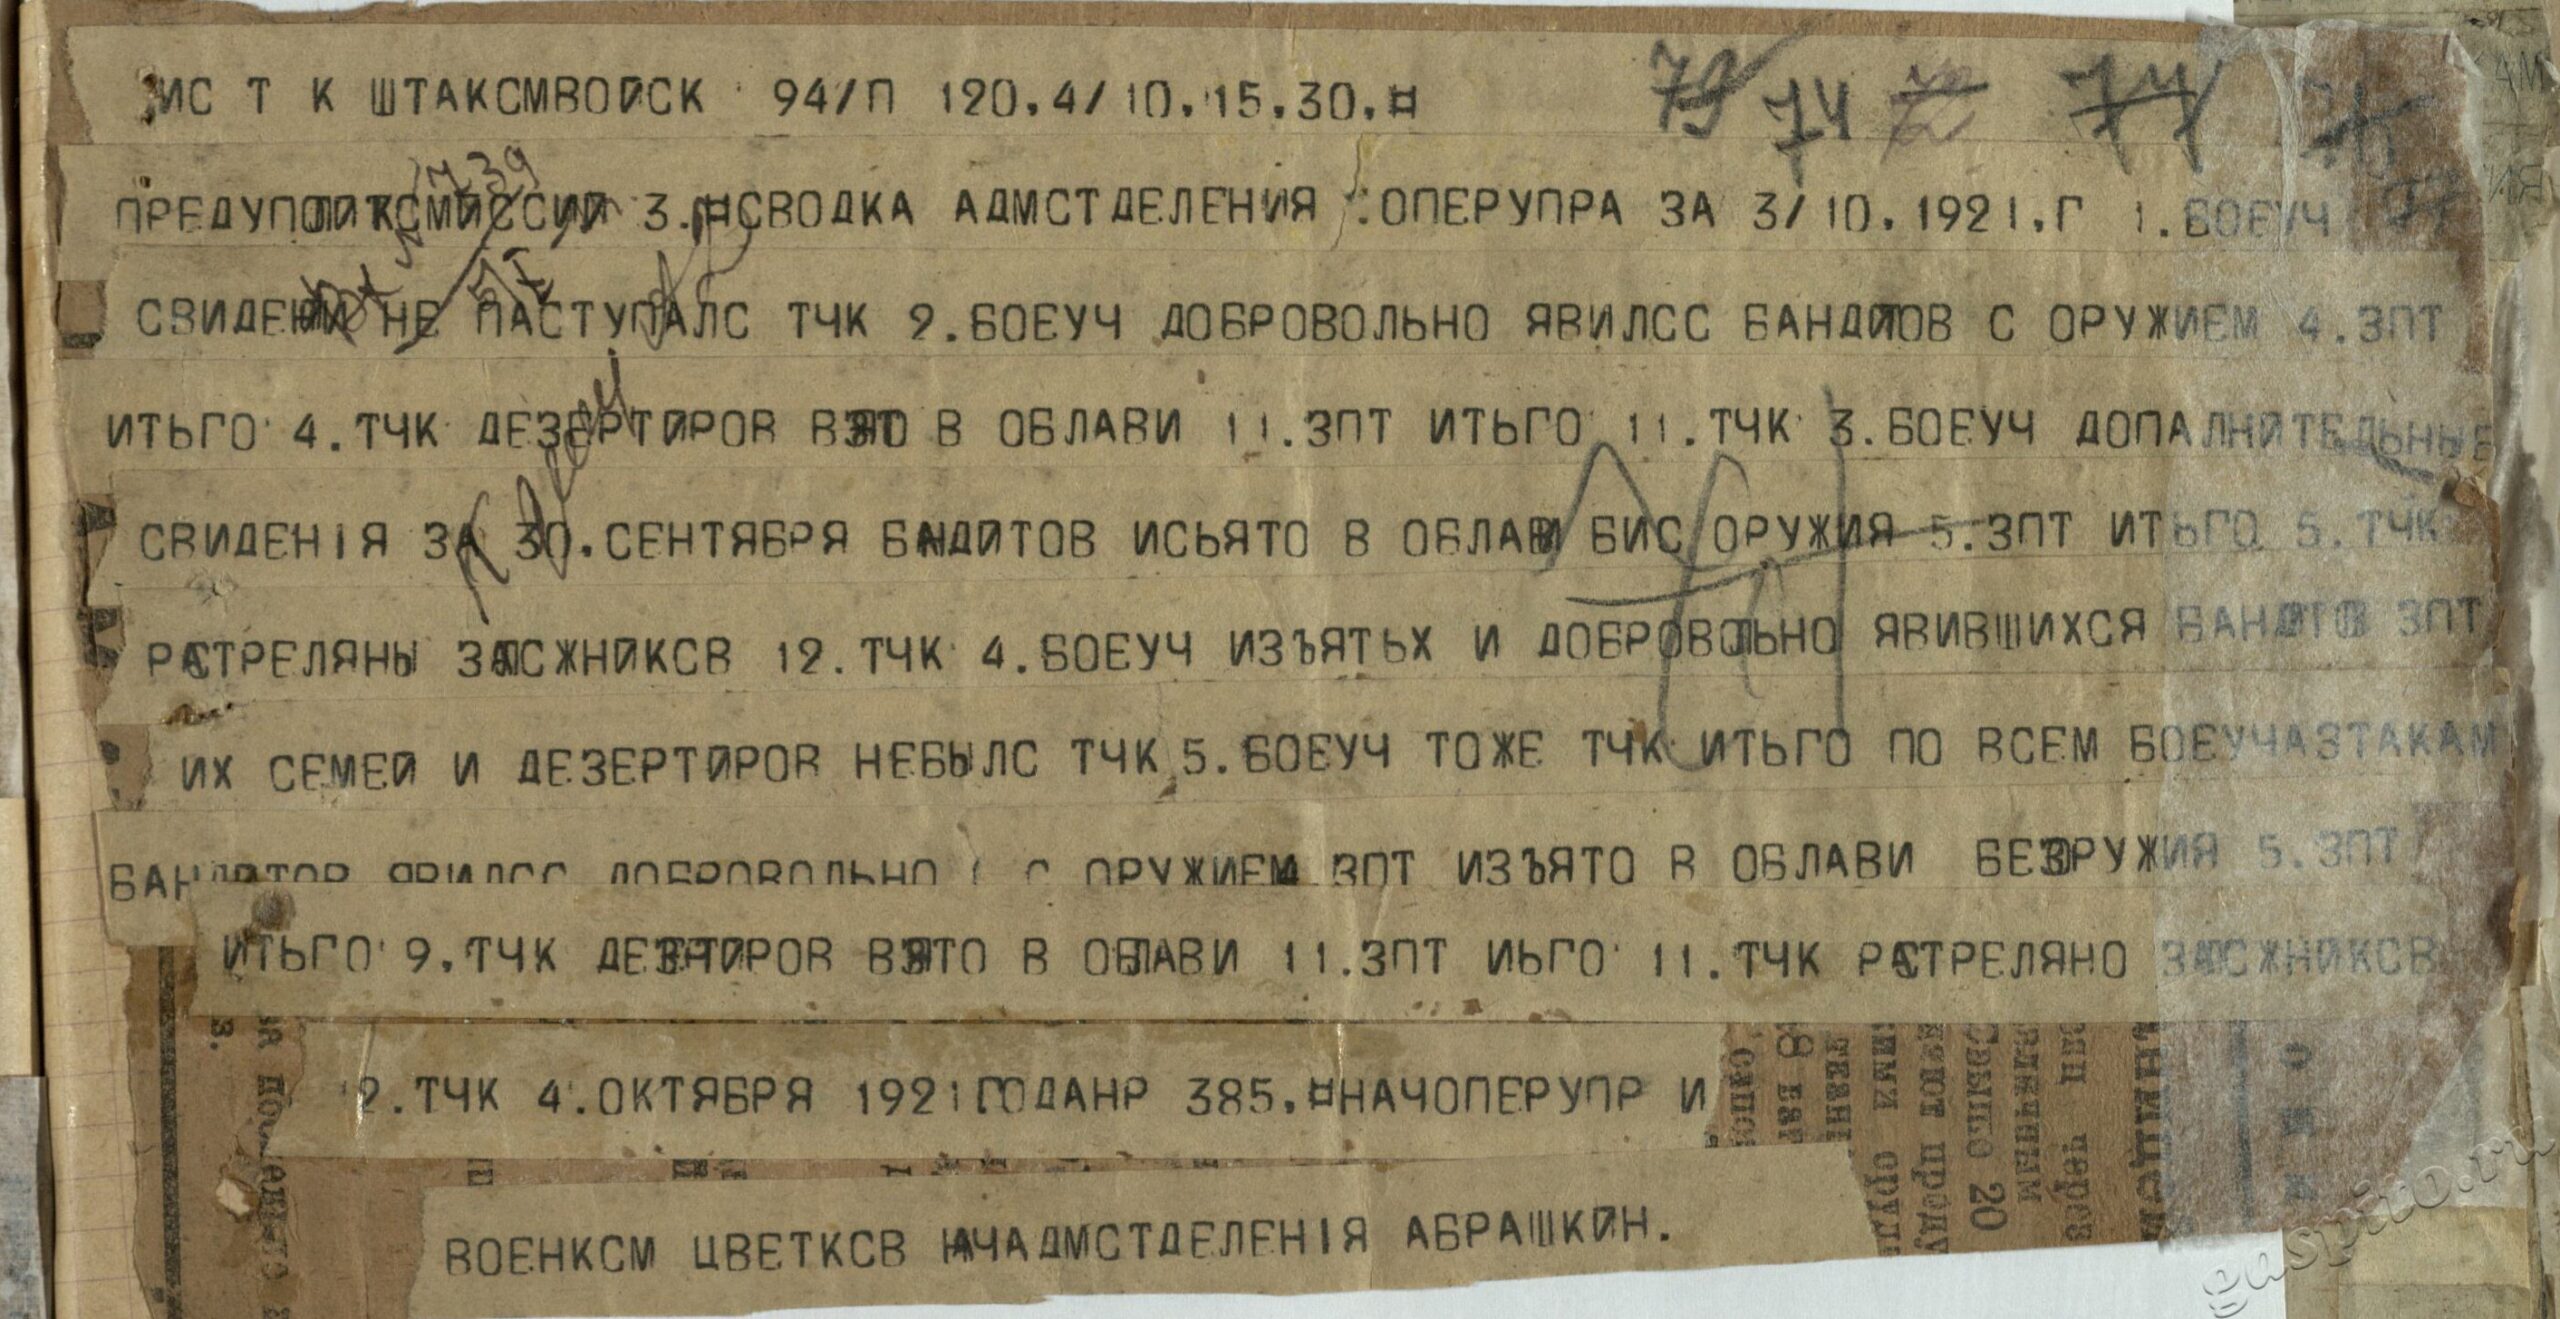 ИС Т К ШТАКСМВОЙСК 94/П 120.4/10.15.30.¤
79 74 72 77
ПРЕДУПОЛИТКСМИССИИ 3.¤СВОДКА АДМСТДЕЛЕНИЯ :ОПЕРУПРА ЗА 3/10.1921.Г 1.БОЕУЧ
СВИДЕНИИ НЕ ПАСТУПАЛС ТЧК 2.БОЕУЧ ДОБРОВОЛЬНО ЯВИЛСС БАНДИТОВ С ОРУЖИЕМ 4.ЗПТ
ИТЬГО 4.ТЧК ДЕЗЕРТИРОВ ВЗЯТО В ОБЛАВИ 11.ЗПТ ИТЬГО 11.ТЧК 3.БОЕУЧ ДОПАЛНИТЕЛЬНЫЕ
СВИДЕНІЯ ЗА 30.СЕНТЯБРЯ БАНДИТОВ ИСЬЯТО В ОБЛАВИ БИС ОРУЖИЯ 5.ЗПТ ИТЬГО 5.ТЧК
РАСТРЕЛЯНЫ ЗАЛСЖНИКСВ 12.ТЧК 4.БОЕУЧ ИЗЪЯТЬХ И ДОБРОВОЛЬНО ЯВИВШИХСЯ БАНДИТОВ ЗПТ
ИХ СЕМЕЙ И ДЕЗЕРТИРОВ НЕБЫЛС ТЧК 5.БОЕУЧ ТОЖЕ ТЧК ИТЬГО ПО ВСЕМ БОЕУЧАЗТАКАМ
БАНДИТОВ ЯВИЛСС ДОБРОВОЛЬНО С ОРУЖИЕМ 4 ЗПТ ИЗЪЯТО В ОБЛАВИ БЕЗОРУЖИЯ 5.ЗПТ
ИТЬГО 9.ТЧК ДЕЗЕРТИРОВ ВЗЯТО В ОБЛАВИ 11.ЗПТ ИЬГО 11.ТЧК РАСТРЕЛЯНО ЗАЛСЖНИКСВ
12.ТЧК 4.ОКТЯБРЯ 1921ГОДАНР 385.¤НАЧОПЕРУПР И
ВОЕНКСМ ЦВЕТКСВ НАЧАДМСТДЕЛЕНІЯ АБРАШКИН.
gaspito.ru